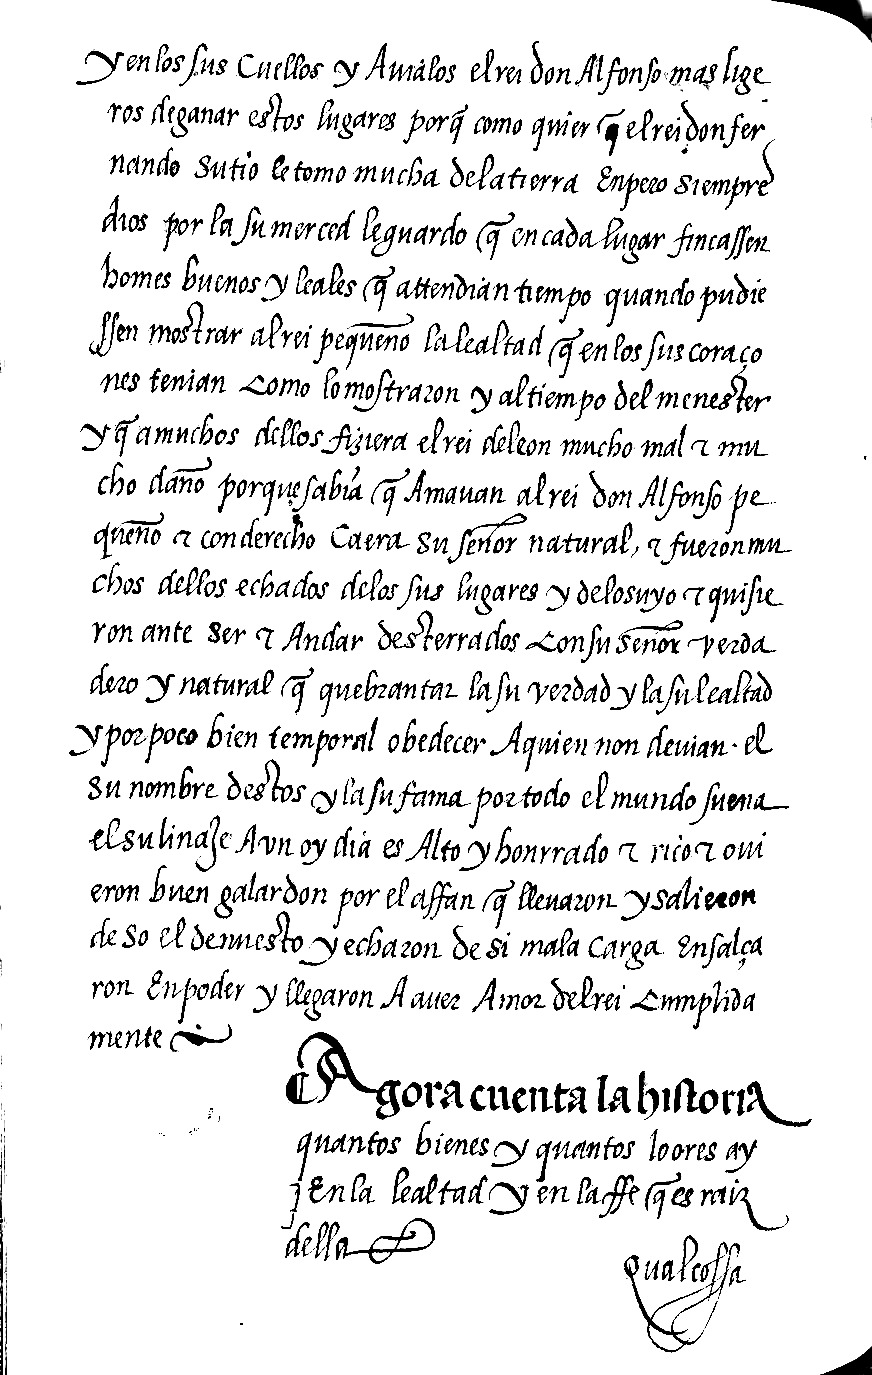 y en los sus Cuellos y Auialos el rei don Alfonso mas lige
ros deganar estos lugares porq̃ como quier q̃ el rei don fer
nando su tio le tomo mucha dela tierra Enpero siempre
dios por la su merced le guardo q̃ en cada lugar fincassen
homes buenos y leales q̃ attendian tiempo quando pudie
ssen mostrar al rei pequeño la lealtad q̃ en los sus coraço
nes tenian Como lo mostraron y al tiempo del menester
y q̃ a muchos dellos fiziera el rei de leon mucho mal τ mu
cho daño porque sabia q̃ Amauan al rei don Alfonso pe
queño τ con derecho Caera su señor natural, τ fueron mu
chos dellos echados delos sus lugares y delo suyo τ quisie
ron ante ser τ Andar desterrados Con su señor verda
dero y natural q̃ quebrantar la su verdad y la su lealtad
y por poco bien temporal obedecer Aquien non deuian. el
su nombre destos y la su fama por todo el mundo suena
el su linaje Avn oy dia es Alto y honrrado τ rico τ oui
eron buen galardon por el affan q̃ lleuaron y salieron
de so el denuesto y echaron de si mala Carga Ensalça
ron En poder y llegaron A auer Amor del rei Cumplida
mente
Agora cuenta la historia
quantos bienes y quantos loores ay
En la lealtad y en la ffe q̃ es raiz
della
qual cossa